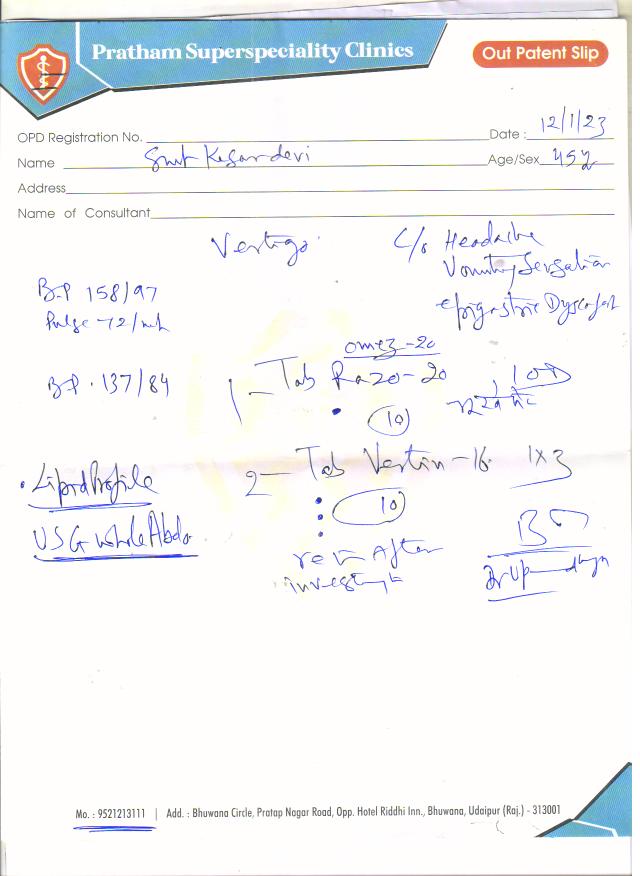 Pratham Superspeciality Clinics
Out Patent Slip
OPD Registration No.
Date : 12/1/23
Name Smt Kesar devi
Age/Sex 45y
Address
Name of Consultant
Vertigo
C/o Headache
Vomiting Sensation
epigastric
B.P 158/97
Pulse 72/mt
omez-20
B.P. 137/84
1 - Tab Razo-20 1 OD
10
2 - Tab Vertin-16 1x3
10
Lipid Profile
USG whole Abdo
After
Mo. : 9521213111 | Add. : Bhuwana Circle, Pratap Nagar Road, Opp. Hotel Riddhi Inn., Bhuwana, Udaipur (Raj.) - 313001